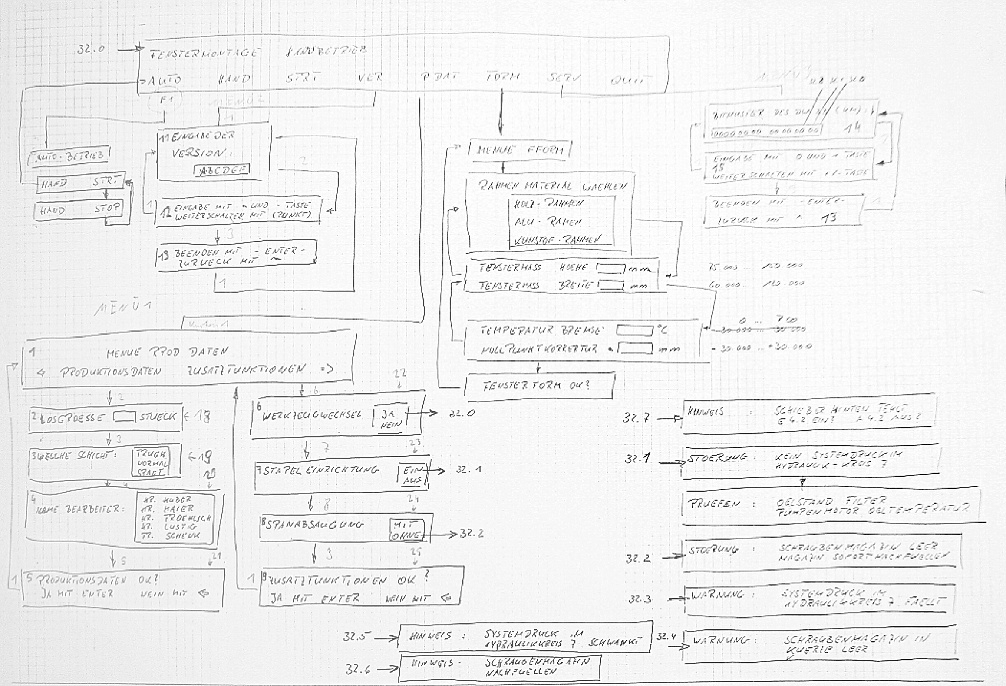 32.0
FENSTERMONTAGE HANDBETRIEB
AUTO HAND STRT VER PDAT FORM SERV QUIT
F1
MENUE 2
MENUE 3
AUTO-BETRIEB
HAND STRT
HAND STOP
11 EINGABE DER
VERSION:
ABCDEF
2
12 EINGABE MIT - UND - TASTE
WEITERSCHALTEN MIT (PUNKT)
3
13 BEENDEN MIT - ENTER -
ZURUECK MIT
1
MENUE FFORM
RAHMEN MATERIAL WAEHLEN
HOLZ-RAHMEN
ALU-RAHMEN
KUNSTOF-RAHMEN
FENSTERMASS HOEHE mm
FENSTERMASS BREITE mm
TEMPERATUR BREMSE: °C
NULLPUNKTKORREKTUR mm
FENSTERFORM OK?
14
EINGABE MIT 0 UND 1 TASTE
15
WEITERSCHALTEN MIT
BEENDEN MIT - ENTER -
ZURUECK MIT ^ 13
- 30.000 ... + 30.000
MENÜ 1
1
MENUE PROD DATEN
PRODUKTIONSDATEN ZUSATZFUNKTIONEN =>
2
2 LOSGROESSE STUECK 18
3
3 WELCHE SCHICHT: FRUEH
NORMAL
SPAET
19
4
NAME BEARBEITER: HR. HUBER
HR. MAIER
HR. FROEHLICH
HR. LUSTIG
FR. SCHENK
20
5
21
1
5 PRODUKTIONSDATEN OK?
JA MIT ENTER NEIN MIT <=
6
22
6
WERKZEUGWECHSEL JA
NEIN
32.0
7
23
7 STAPELEINRICHTUNG EIN
AUS
32.1
8
24
8 SPANABSAUGUNG MIT
OHNE
32.2
25
1
9 ZUSATZFUNKTIONEN OK?
JA MIT ENTER NEIN MIT <=
32.7
HINWEIS : SCHIEBER HINTEN FEHLT
E 4.2 EIN? A 4.2 AUS?
32.1
STOERUNG: KEIN SYSTEMDRUCK IM
HYDRAULIK-KREIS 7
PRUEFEN : OELSTAND FILTER
PUMPENMOTOR OELTEMPERATUR
32.2
STOERUNG: SCHRAUBENMAGAZIN LEER
MAGAZIN SOFORT NACHFUELLEN
32.3
WARNUNG : SYSTEMDRUCK IM
HYDRAULIKKREIS 7 FAELLT
32.4
WARNUNG : SCHRAUBENMAGAZIN IN
KUERZE LEER
32.5
HINWEIS : SYSTEMDRUCK IM
HYDRAULIKKREIS 7 SCHWANKT
32.6
HINWEIS - SCHRAUBENMAGAZIN
NACHFUELLEN